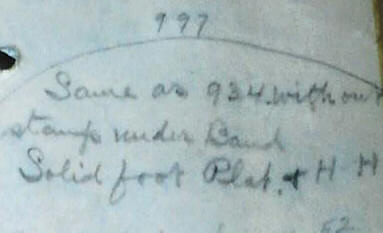 997
Same as 934 without
stamp under Band
Solid foot Plat. & H H
52